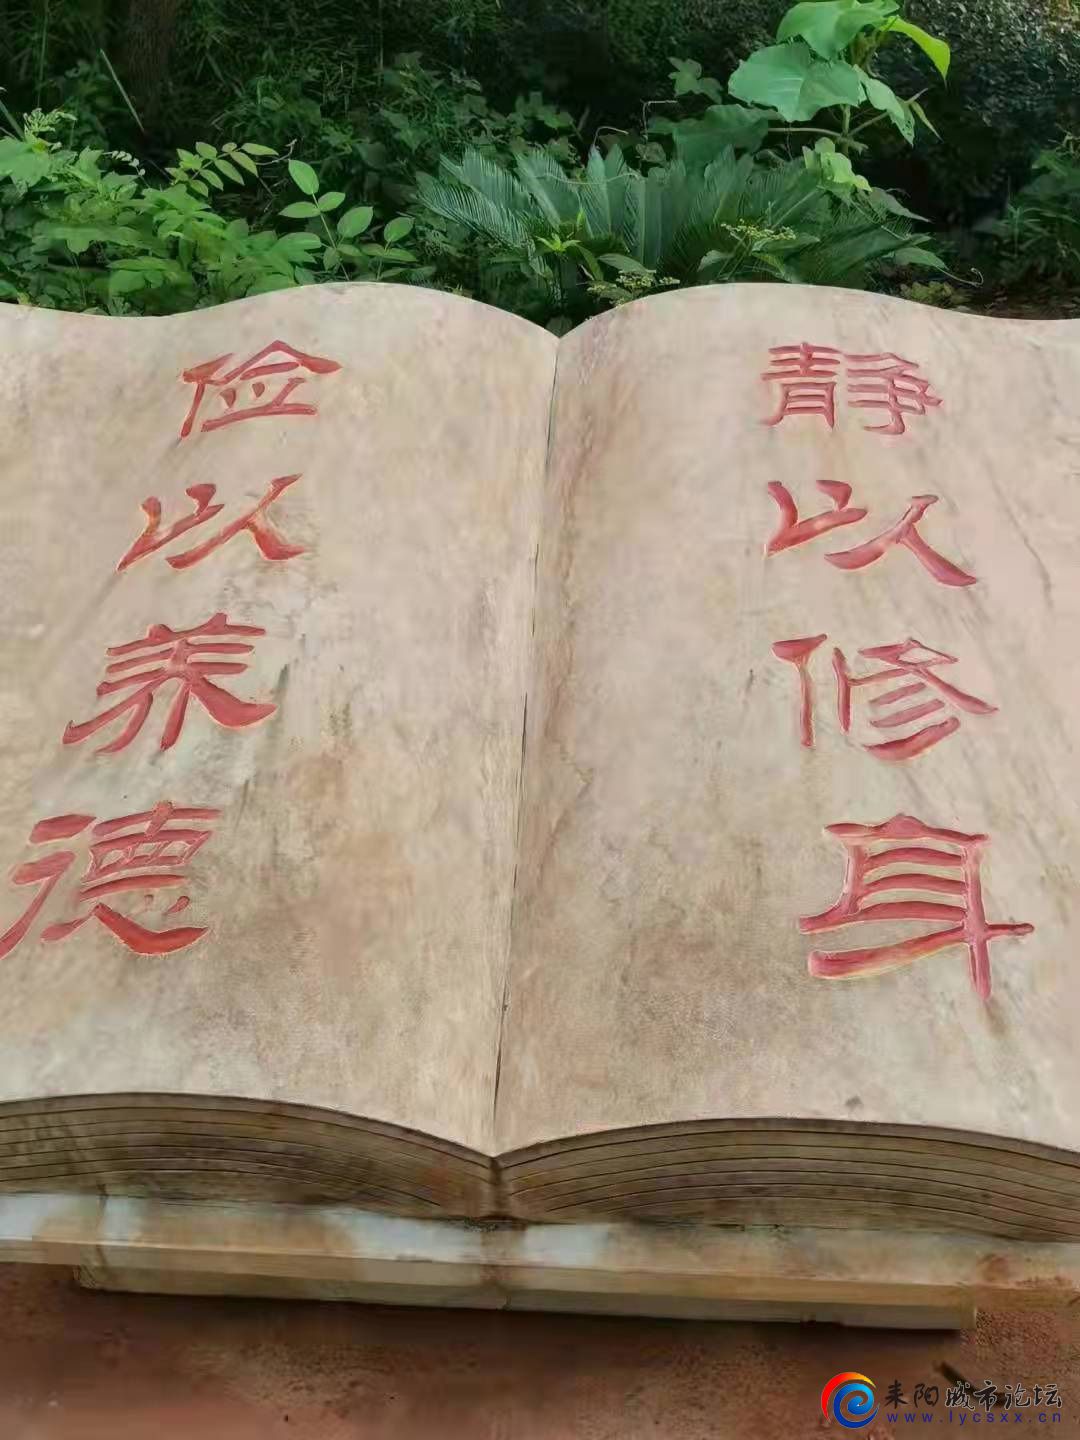 静以修身
俭以养德
耒阳城市论坛
www.lycsxx.cn